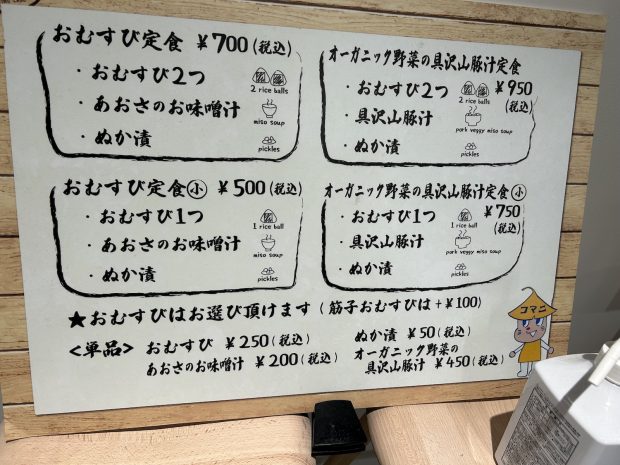 おむすび定食 ¥700(税込)
・おむすび2つ
2 rice balls
・あおさのお味噌汁
miso soup
・ぬか漬
pickles
オーガニック野菜の具沢山豚汁定食
・おむすび2つ ¥950
2 rice balls (税込)
・具沢山豚汁
pork veggy miso soup
・ぬか漬
pickles
おむすび定食㊙小 ¥500(税込)
・おむすび1つ
1 rice ball
・あおさのお味噌汁
miso soup
・ぬか漬
pickles
オーガニック野菜の具沢山豚汁定食 小
・おむすび1つ ¥750
1 rice ball (税込)
・具沢山豚汁
pork veggy miso soup
・ぬか漬
pickles
★おむすびはお選び頂けます(筋子おむすびは+¥100)
<単品> おむすび ¥250(税込)
あおさのお味噌汁 ¥200(税込)
ぬか漬 ¥50(税込)
オーガニック野菜の
具沢山豚汁 ¥450(税込)
コマニ